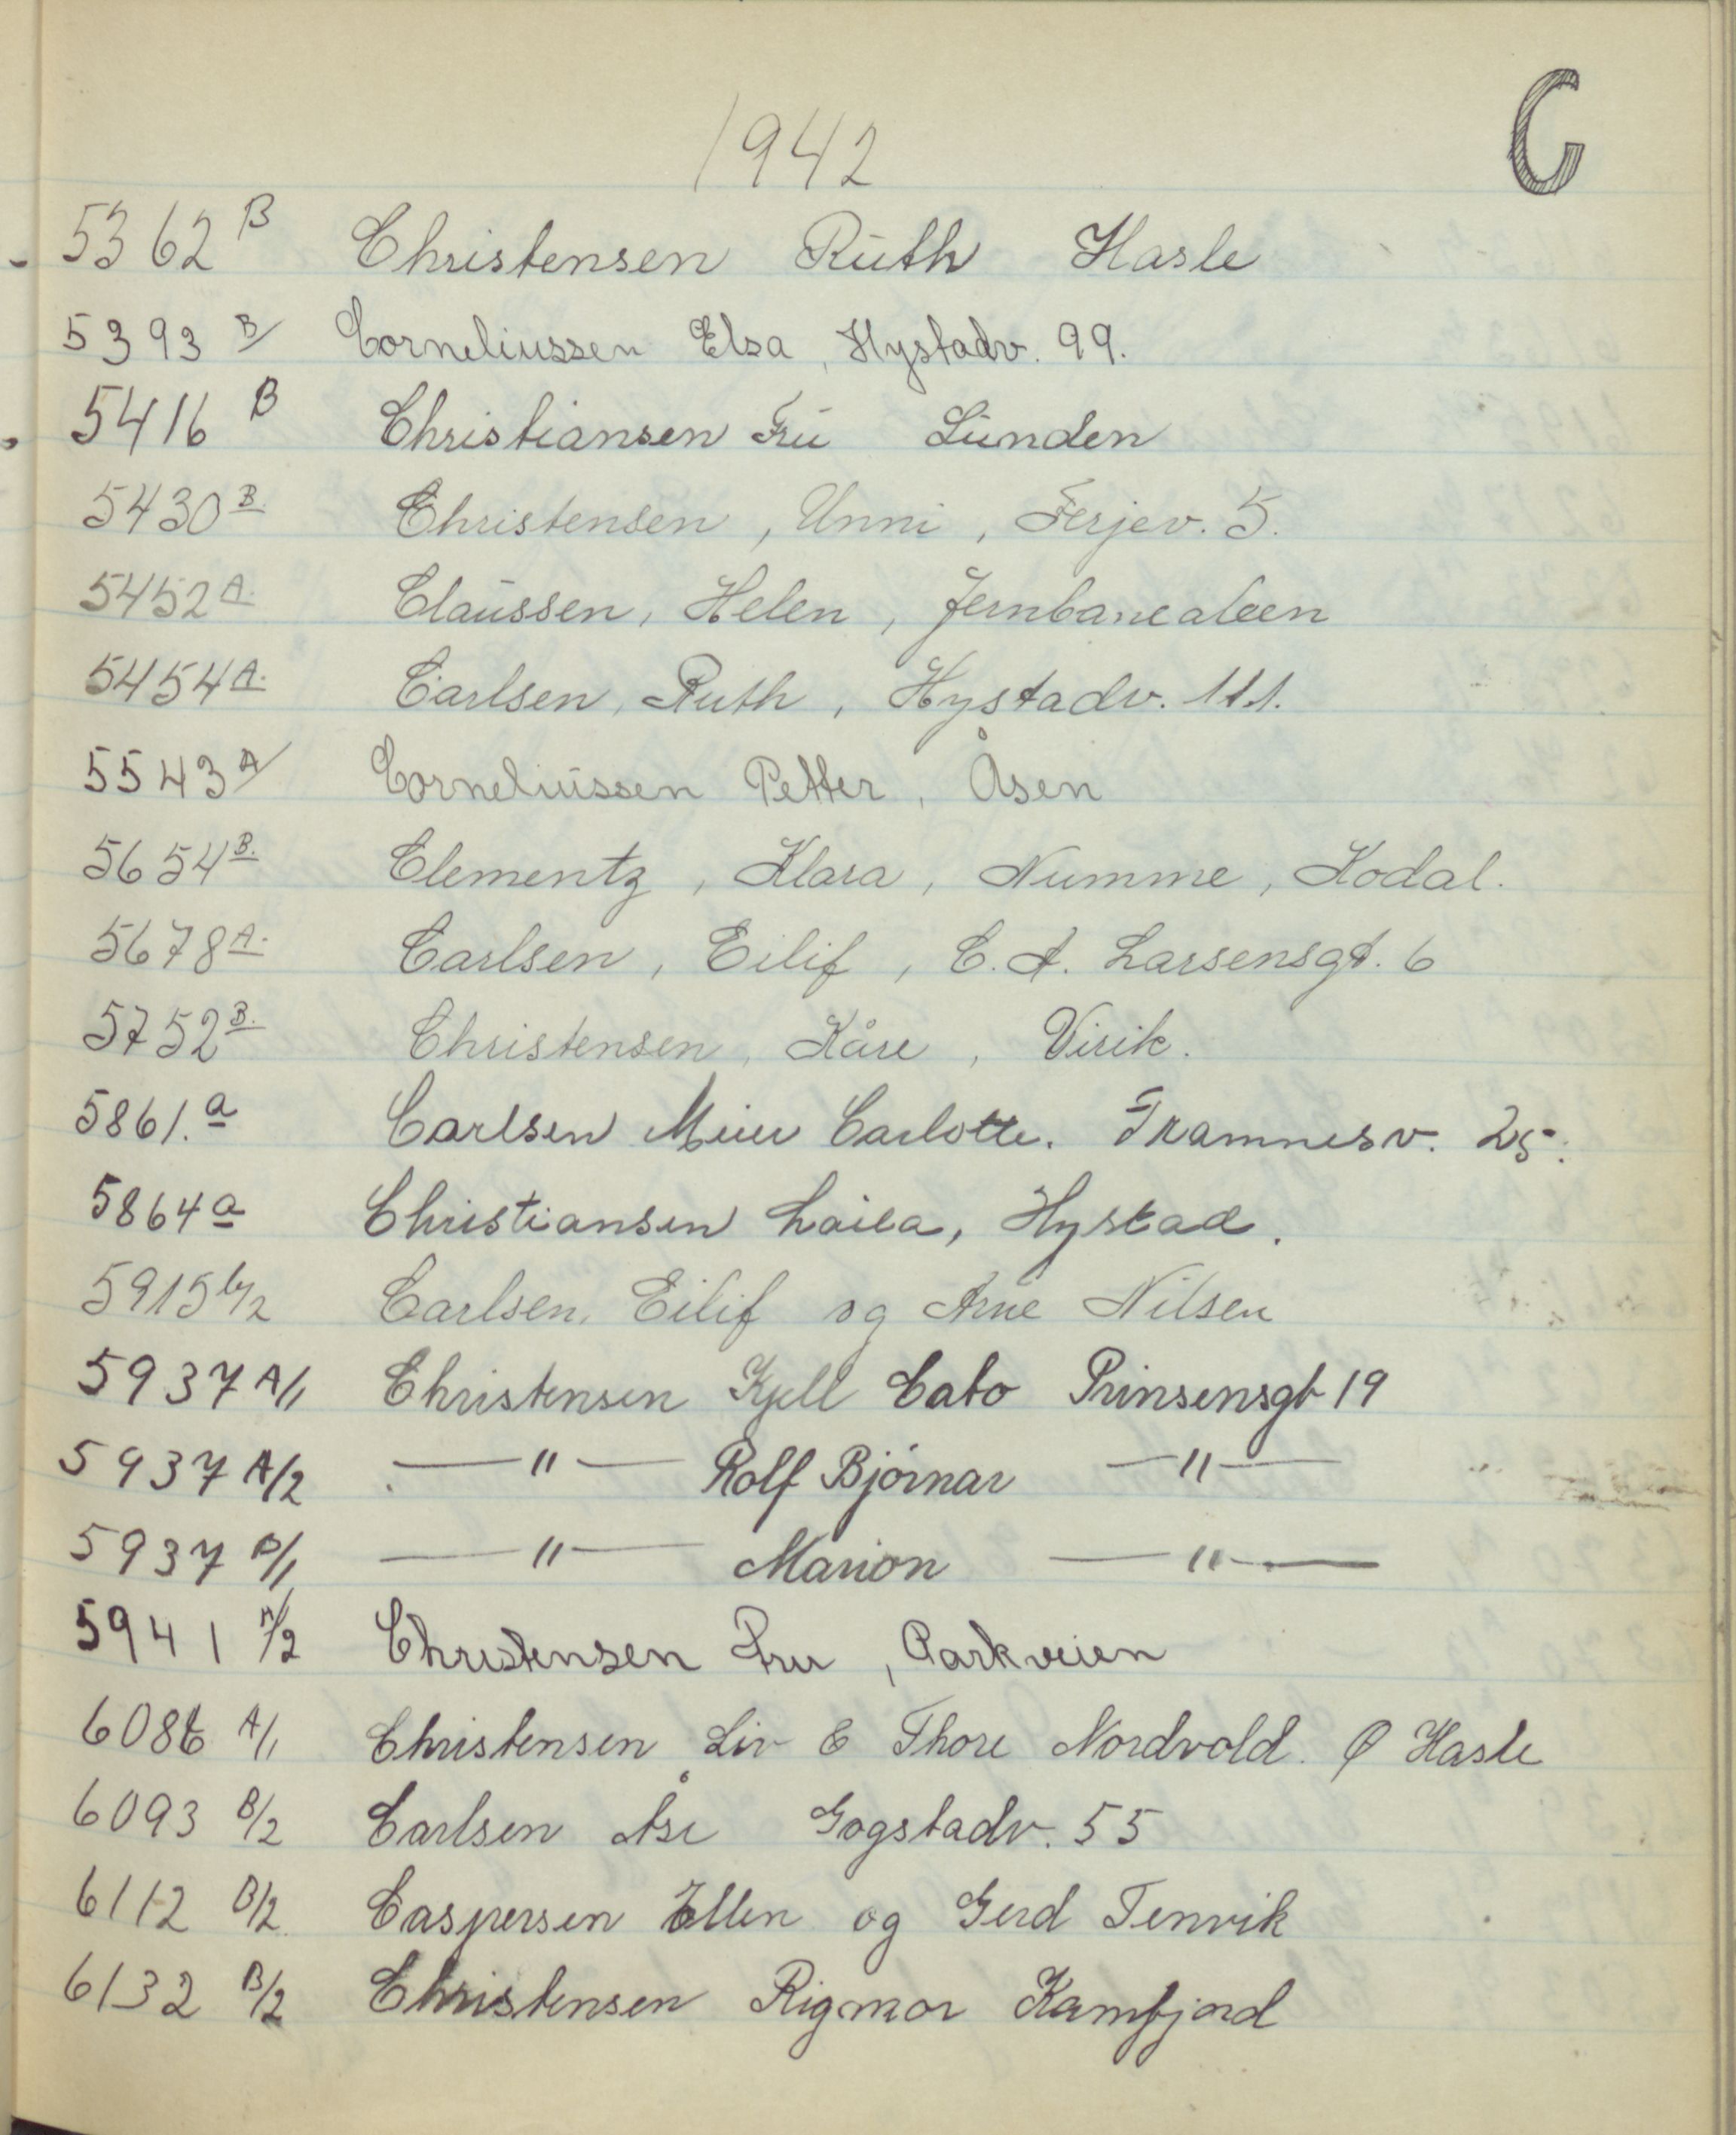 C
1942
5362 B Christensen Ruth Hasle
5393 B/ Corneliussen Elsa, Hystadv. 99.
5416 B Christiansen Fru Lunden
5430 B. Christensen, Unni, Ferjev. 5.
5452 A. Claussen, Helen, Jernbanealeen
5454 A. Carlsen, Ruth, Hystadv. 111.
5543 A/ Corneliussen Petter, Åsen
5654 B. Clementz, Klara, Numme, Kodal.
5678 A. Carlsen, Eilif, C. A. Larsensgt. 6
5752 B. Christensen, Kåre, Virik.
5861. a Carlsen Meier Carlotte. Framnesv. 25.
5864 a Christiansen Laila, Hystad.
5915 b/2 Carlsen, Eilif og Arne Nilsen
5937 A/1 Christensen Kjell Cato Prinsensgt 19
5937 A/2 —"— Rolf Bjørnar —"—
5937 B/1 —"— Marion —"—
5941 A/2 Christensen Fru, Parkveien
6086 A/1 Christensen Liv & Thore Nordvold. Ø Hasle
6093 B/2 Carlsen Åse Gogstadv. 55
6112 B/2 Caspersen Ellen og Gerd Tenvik
6132 B/2 Christensen Rigmor Kamfjord